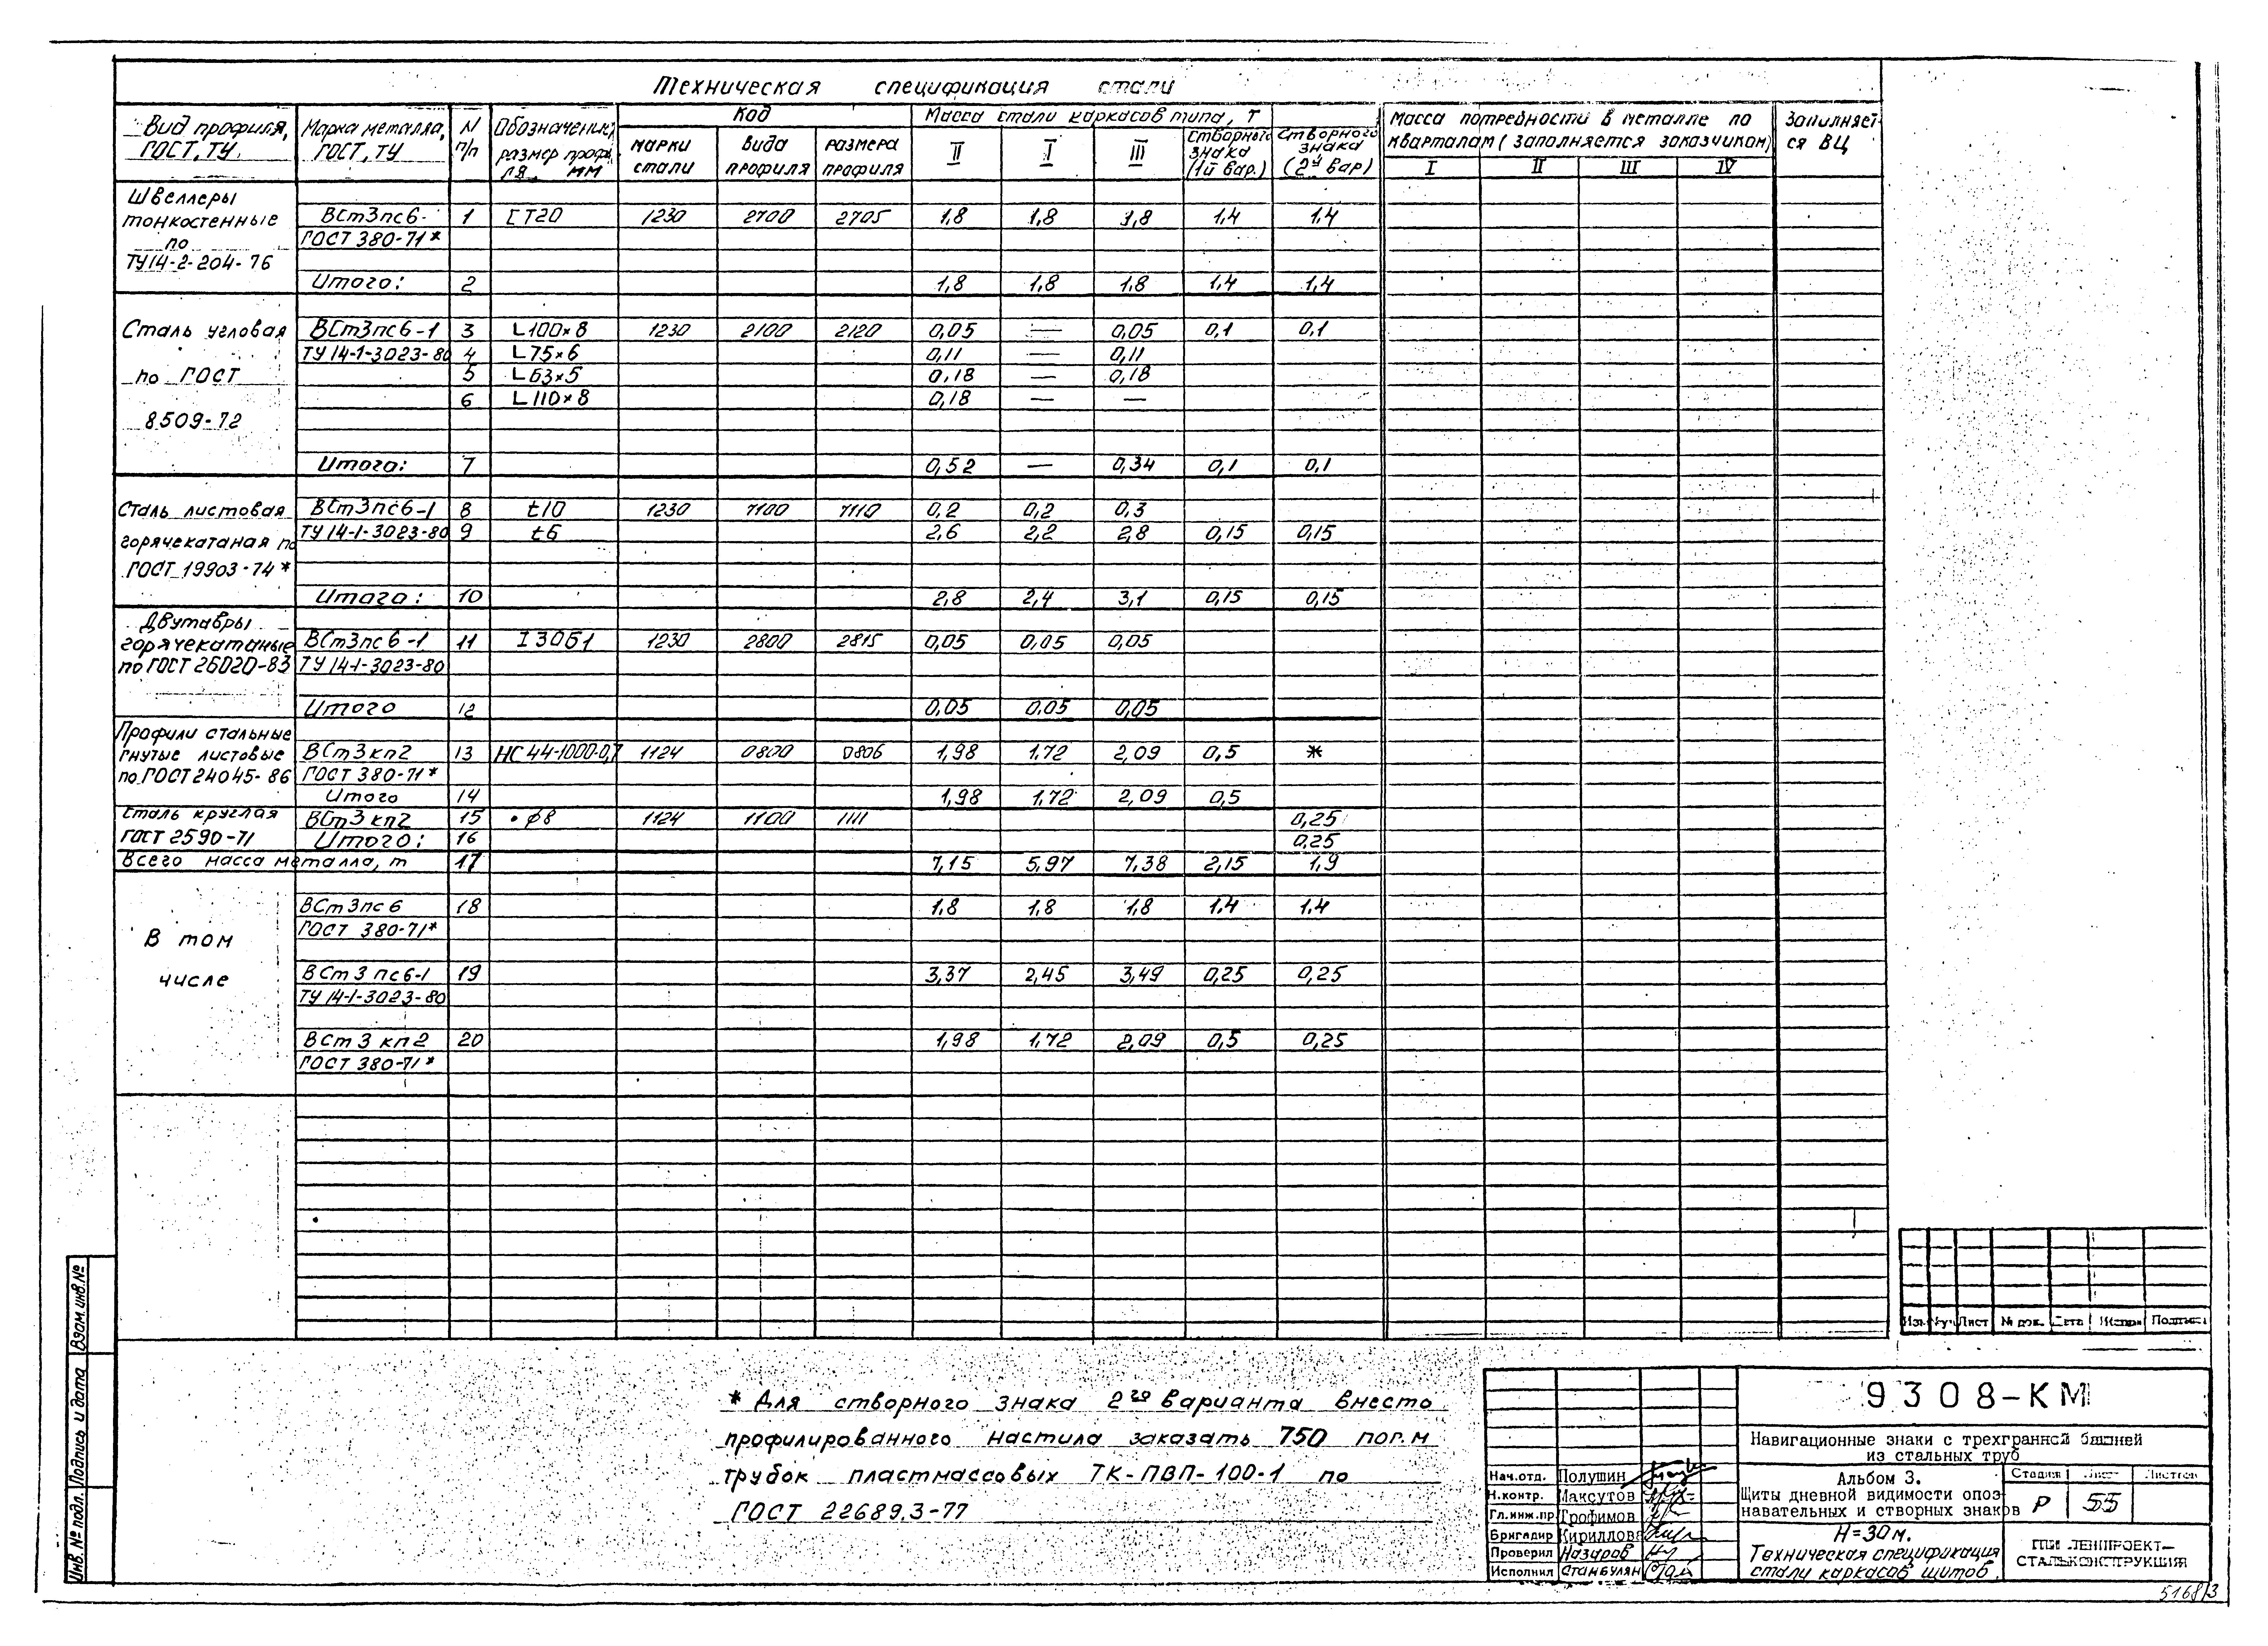 Техническая спецификация стали
Вид профиля, ГОСТ, ТУ
Марка металла, ГОСТ, ТУ
N п/п
Обозначение, размер профиля мм
Код
марки стали
вида профиля
размера профиля
Масса стали каркасов типа, т
II
I
III
Створного знака (1й вар.)
Створного знака (2й вар)
Масса потребности в металле по кварталам (заполняется заказчиком)
I II III IV
Заполняется ВЦ
Швеллеры тонкостенные по ТУ14-2-204-76
ВСт3пс6- 1 [Т20 1230 2700 2705 1,8 1,8 1,8 1,4 1,4
ГОСТ 380-71*
Итого: 2 1,8 1,8 1,8 1,4 1,4
Сталь угловая по ГОСТ 8509-72
ВСт3пс6-1 3 L100×8 1230 2100 2120 0,05 — 0,05 0,1 0,1
ТУ 14-1-3023-80 4 L75×6 0,11 — 0,11
5 L63×5 0,18 — 0,18
6 L110×8 0,18 — —
Итого: 7 0,52 — 0,34 0,1 0,1
Сталь листовая горячекатаная по ГОСТ 19903-74*
ВСт3пс6-1 8 t10 1230 7100 7110 0,2 0,2 0,3
ТУ 14-1-3023-80 9 t6 2,6 2,2 2,8 0,15 0,15
Итого: 10 2,8 2,4 3,1 0,15 0,15
Двутавры горячекатаные по ГОСТ 26020-83
ВСт3пс6-1 11 I30Б1 1230 2800 2815 0,05 0,05 0,05
ТУ 14-1-3023-80
Итого 12 0,05 0,05 0,05
Профили стальные гнутые листовые по ГОСТ 24045-86
ВСт3кп2 13 НС44-1000-0,7 1124 0800 0806 1,98 1,72 2,09 0,5 *
ГОСТ 380-71*
Итого 14 1,98 1,72 2,09 0,5
Сталь круглая ГОСТ 2590-71
ВСт3кп2 15 • ϕ8 1124 1100 1111 0,25
Итого: 16 0,25
Всего масса металла, т 17 7,15 5,97 7,38 2,15 1,9
В том числе
ВСт3пс6 18 1,8 1,8 1,8 1,4 1,4
ГОСТ 380-71*
ВСт3пс6-1 19 3,37 2,45 3,49 0,25 0,25
ТУ 14-1-3023-80
ВСт3кп2 20 1,98 1,72 2,09 0,5 0,25
ГОСТ 380-71*
* Для створного знака 2го варианта вместо
профилированного настила заказать 750 пог.м
трубок пластмассовых ТК-ПВП-100-1 по
ГОСТ 22689.3-77
Изм. №уч Лист № док. Дата Подпись
9308-КМ
Навигационные знаки с трехгранной башней
из стальных труб
Альбом 3.
Щиты дневной видимости опоз-
навательных и створных знаков
H=30м.
Стадия Лист Листов
Р 55
Техническая спецификация
стали каркасов щитов.
ГПИ ЛЕНПРОЕКТ-
СТАЛЬКОНСТРУКЦИЯ
Нач.отд. Полушин
Н.контр. Максутов
Гл.инж.пр. Трофимов
Бригадир Кириллова
Проверил Назаров
Исполнил Станбулян
Инв. № подл. Подпись и дата Взам. инв. №
5168/3